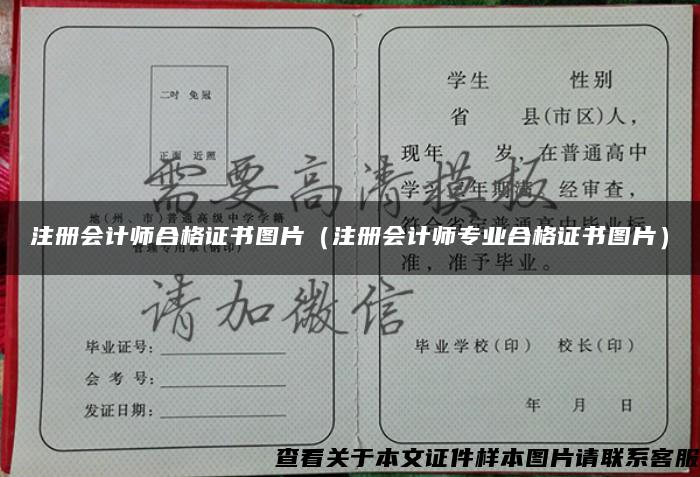 二吋 免冠
正面 近照
地(州、市)普通高级中学学籍
管理专用章(钢印)
毕业证号:
会考号:
发证日期:
学生 性别
省 县(市区)人，
现年 岁，在普通高中
学习 年期满，经审查，
符合省定普通高中毕业标
准，准予毕业。
毕业学校(印) 校长(印)
年 月 日
需要高清模板
请加微信
注册会计师合格证书图片（注册会计师专业合格证书图片）
查看关于本文证件样本图片请联系客服